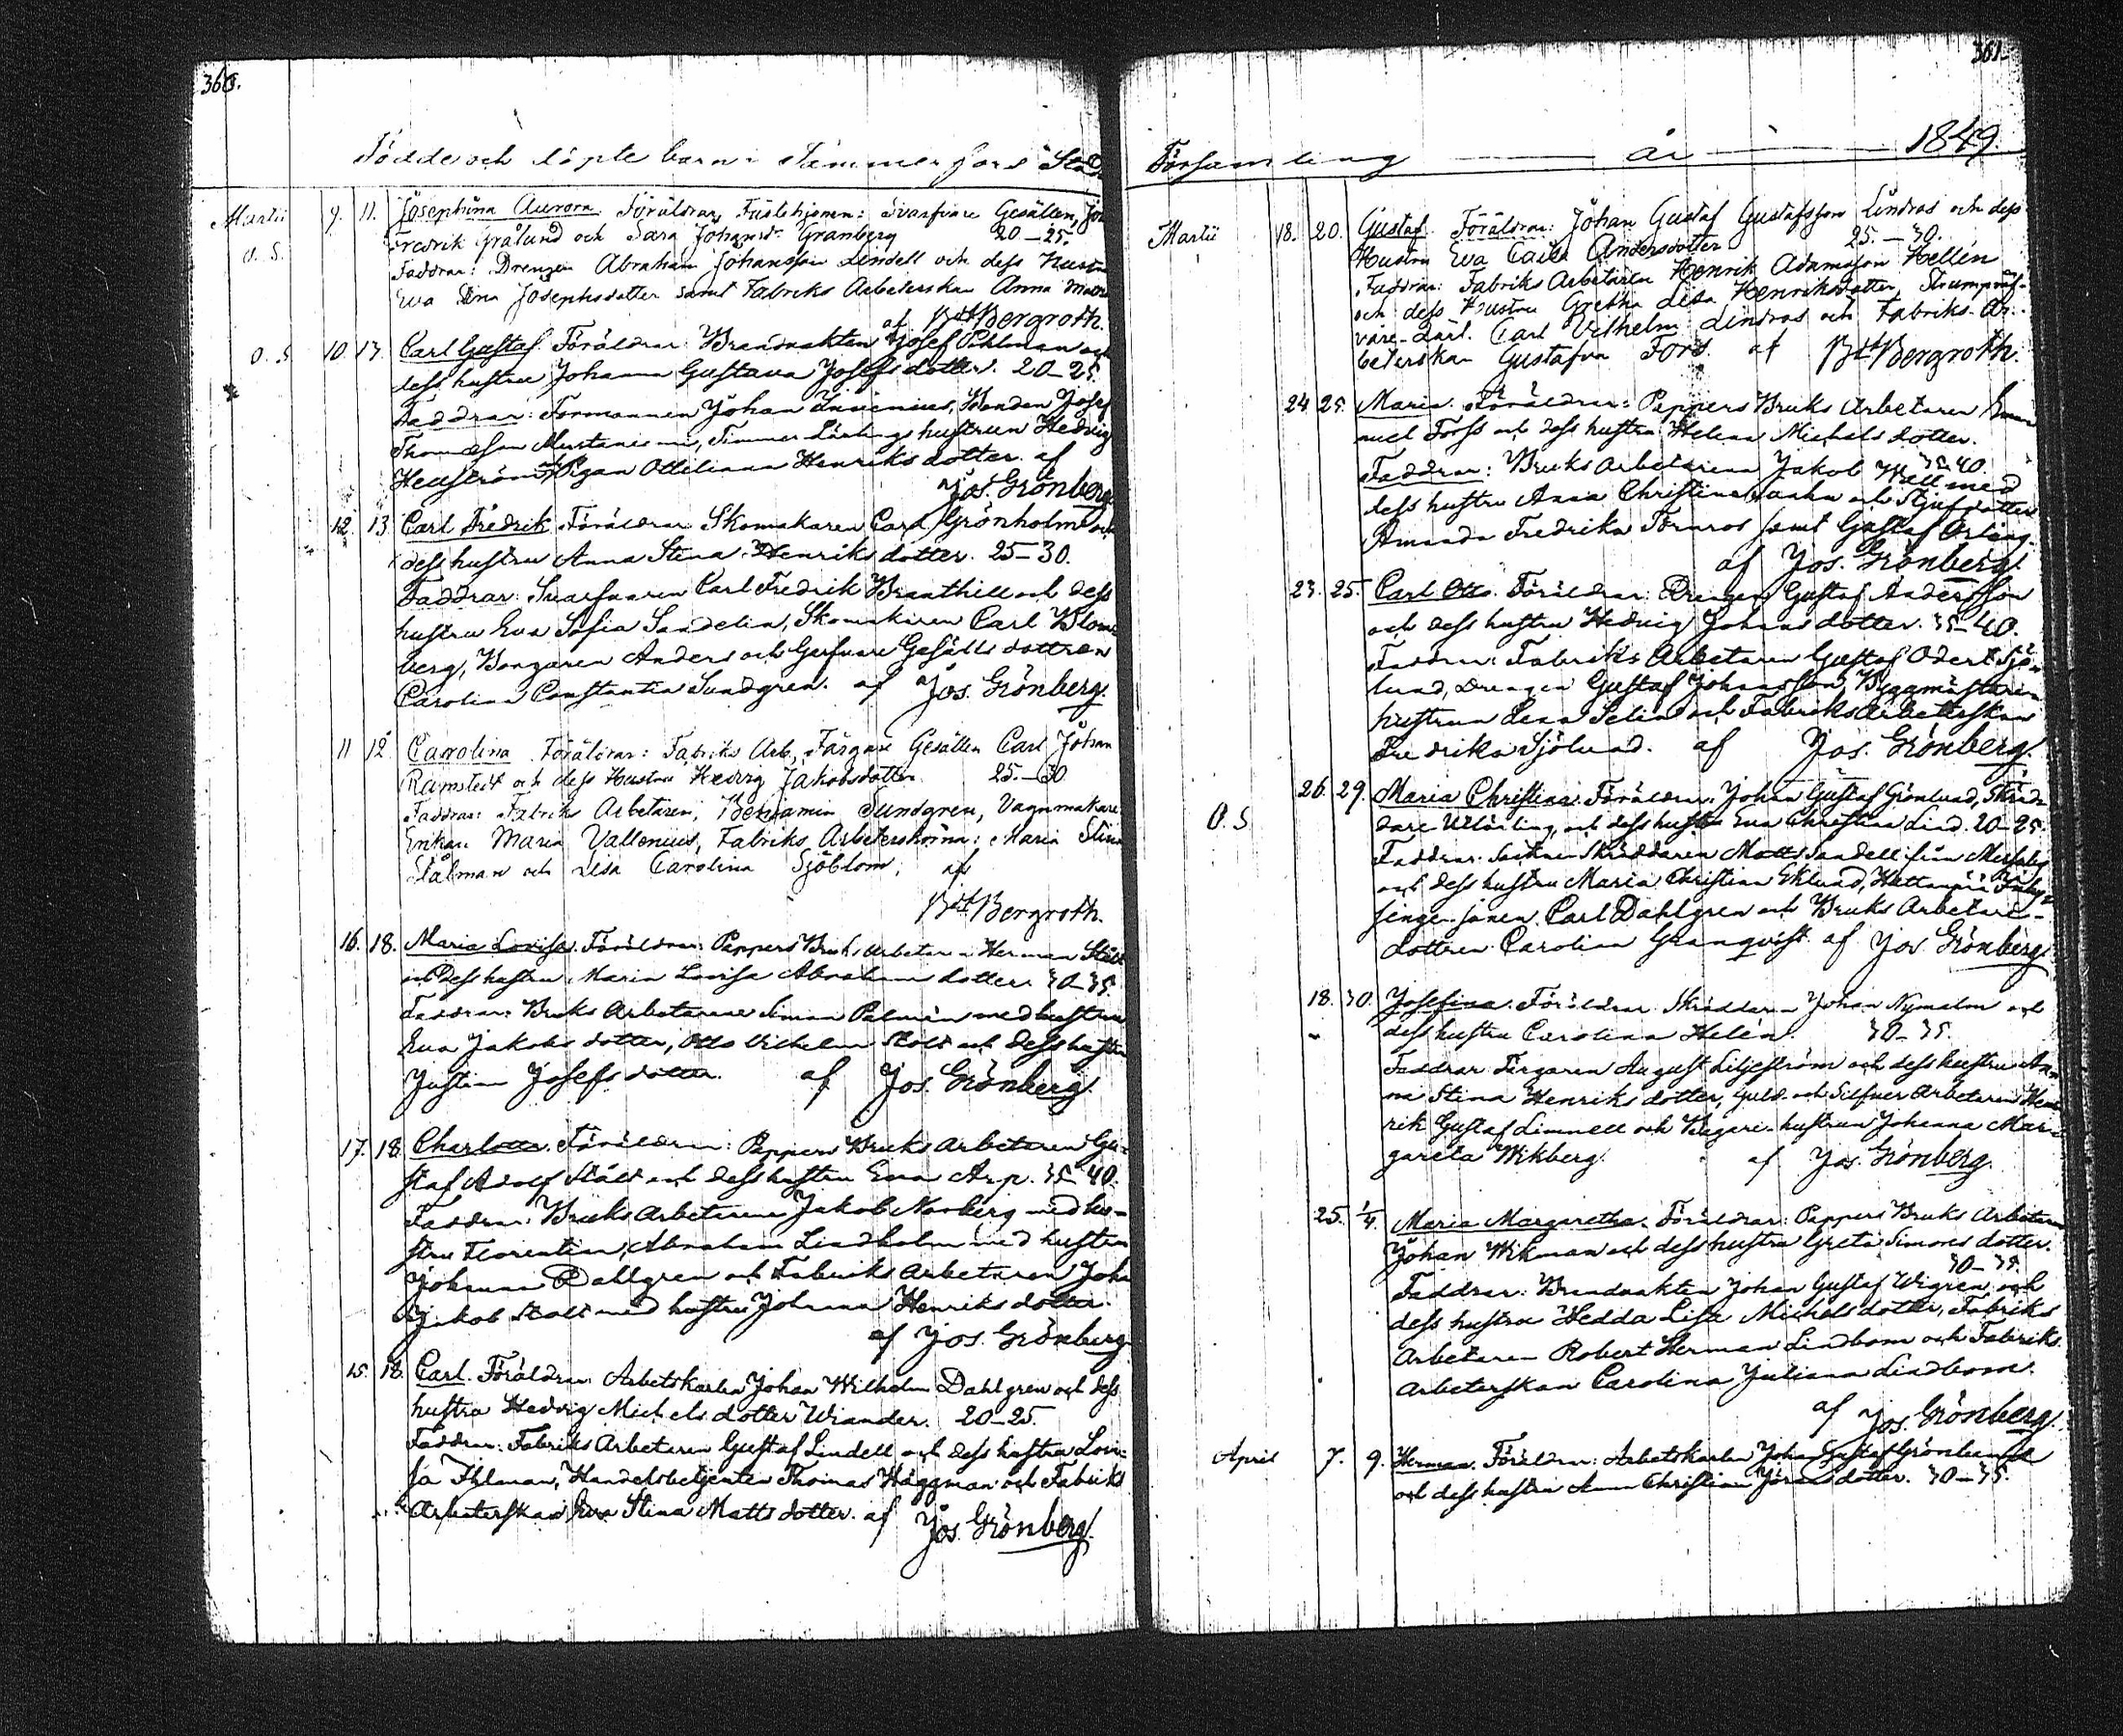 360.
Födde och döpte barn i Tammerfors Stads
Martii 9. 11. Josephina Aurora Föräldrar, Svarfvare Gesällen, Joh
Fredrik Grålund och Sara Johansdr Granberg 20–25.
O. S. Faddrar: Drengen Abraham Johansson Lindell och dess Hustru
Eva Stina Josephsdotter samt Fabriks Arbeterskan Anna
af Bergroth.
O. S. 10. 13. Carl Gustaf. Föräldrar: Brandvakten Josef Pihlman och
dess hustru Johanna Gustava Josefsdotter. 20–25.
Faddrar: Formannen Johan, Bonden Josef
Thomasson, Timmer Lärlings hustrun Hedvig
Pigan Ottiliana Henriksdotter. af
Jos. Grönberg
12. 13. Carl Fredrik. Föräldrar Skomakaren Carl Grönholm och
dess hustru Anna Stina Henriksdotter. 25–30.
Faddrar: Svarfvaren Carl Fredrik Branthill och dess
hustru Eva Sofia Sandelin, Skomakaren Carl Blom-
berg, Anders och Garfvare Gesälls dottren
Carolina Constantia Sundgren. af Jos. Grönberg.
11 12 Carolina Föräldrar: Fabriks Arb, Färgare Gesällen Carl Johan
Ramstedt och dess Hustru Hedvig Jakobsdotter 25.–30
Faddrar: Fabriks Arbetaren, Benjamin Sundgren, Vagnmakare
Enkan Maria Vallenius, Fabriks Arbeterskorna: Maria Stina
Stålman och Lisa Carolina Sjöblom, af
Bergroth.
16. 18. Maria Lovisa. Föräldrar: Pappers Bruks arbetaren Herman Stålt
och dess hustru Maria Lovisa Abrahamsdotter. 30–35.
Faddrar: Bruks Arbetarene Simon Palmén med hustru
Eva Jakobsdotter, Otto Vilhelm Stålt och dess hustru
Justina Josefsdotter. af Jos. Grönberg.
17. 18. Charlotta. Föräldrar: Pappers Bruks Arbetaren Gu-
staf Adolf Stålt och dess hustru Eva Arp. 35–40.
Faddrar: Bruks Arbetarene Jakob Norberg med hu-
stru Florentina, Abraham Lindholm med hustru
Johanna Dahlgren och Fabriks arbetaren Joh
Jakob Stålt med hustru Johanna Henriksdotter.
af Jos. Grönberg
15. 18. Carl. Föräldrar Arbetskarlen Johan Wilhelm Dahlgren och dess
hustru Hedvig Michelsdotter Wiander. 20–25.
Faddrar: Fabriks Arbetaren Gustaf Lindell och dess hustru Lovi-
sa Ihlman, Handelsbetjenten Thomas Häggman och Fabriks
Arbeterskan Eva Stina Mattsdotter. af Jos. Grönberg.
361.
Församling år 1849.
Martii 18. 20. Gustaf. Föräldrar: Johan Gustaf Gustafsson Lindros och dess
Hustru Eva Caisa Andersdotter 25.–30.
Faddrar: Fabriks Arbetaren Henrik Adamsson Hellén
och dess Hustru Gretha Lisa Henriksdotter, Strumpväf-
vare-Lärl. Carl Vilhelm Lindros och Fabriks-Ar-
beterskan Gustafva Fors. af Bergroth.
24. 25. Maria. Föräldrar: Pappers Bruks Arbetaren Ema-
nuel Forss och dess hustru Helena Michelsdotter.
35–40.
Faddrar: Bruks Arbetarena Jakob Wall med
dess hustru Anna Christina och Stjufdotter
Amanda Fredrika Törnros samt Gustaf Örling.
af Jos. Grönberg.
23. 25. Carl Otto. Föräldrar: Drengen Gustaf Andersson
och dess hustru Hedvig Johansdotter. 35–40.
Faddrar: Fabriks Arbetaren Gustaf Odert Sjö-
lund, Drengen Gustaf Johansson, Byggmästare
hustrun Lena Selin och Fabriks Arbeterskan
Fredrika Sjölund. af Jos. Grönberg.
O. S. 26. 29. Maria Christina. Föräldrar: Johan Gustaf Grönlund, Skräd-
dare Utlärling, och dess hustru Eva Christina Lind. 20–25.
Faddrar: Sockne Skräddaren Matts Sandell från Messuby
och dess hustru Maria Christina Eklund,
Carl Dahlgren och Bruks Arbetare-
dottren Carolina Granqvist. af Jos. Grönberg.
18. 30. Josefina. Föräldrar: Skräddaren Johan Nymalm och
dess hustru Carolina Helén. 30–35.
Faddrar: Färgaren August Liljeström och dess hustru An-
na Stina Henriksdotter, Guld och Silfver Arbetaren Hen-
rik Gustaf Limnell och Bagare-hustrun Johanna Mar-
gareta Wikberg. af Jos. Grönberg.
25. 1/4. Maria Margaretha. Föräldrar: Pappers Bruks Arbetaren
Johan Wikman och dess hustru Greta Simonsdotter.
30–35.
Faddrar: Brandvakten Johan Gustaf Wigren och
dess hustru Hedda Lisa Michelsdotter, Fabriks
Arbetaren Robert Herman Lindbom och Fabriks
arbeterskan Carolina Juliana Lindbom.
af Jos. Grönberg.
April 7. 9. Herman. Föräldrar: Arbetskarlen Johan Gustaf Grönlund
och dess hustru Anna Christina Jöransdotter. 30–35.